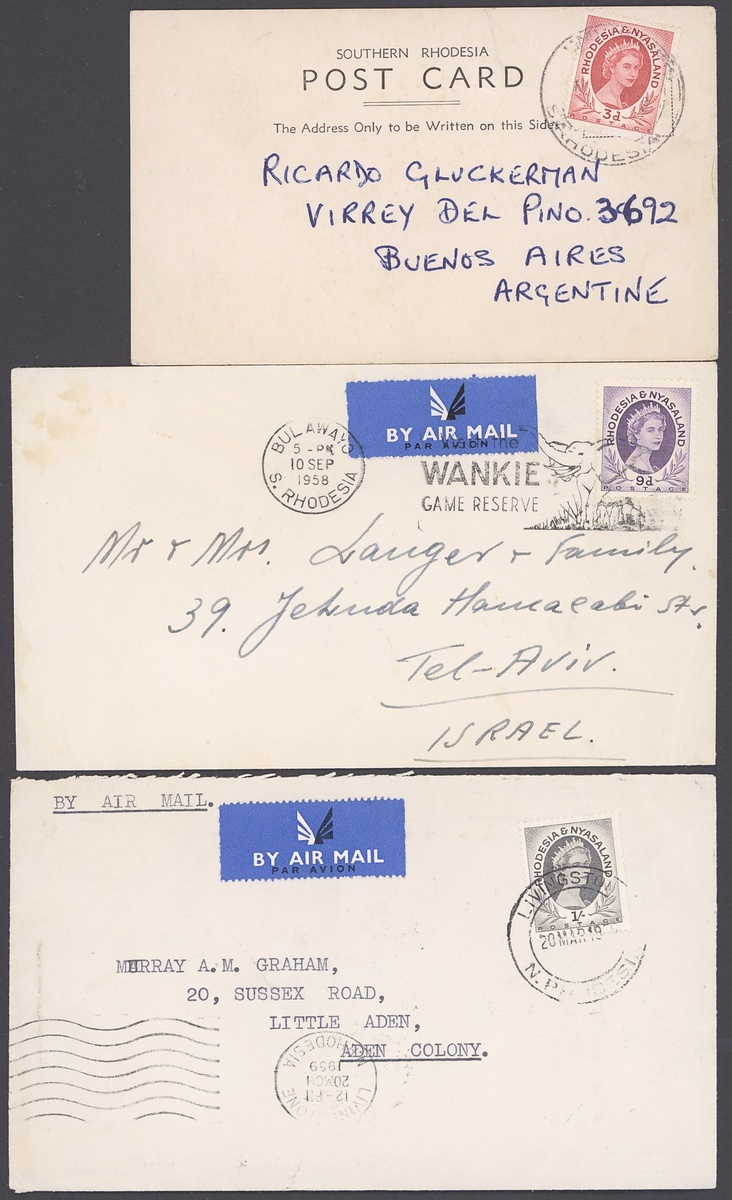 SOUTHERN RHODESIA
POST CARD
The Address Only to be Written on this Side
RHODESIA & NYASALAND
3d
POSTAGE
S. RHODESIA
RICARDO GLUCKERMAN
VIRREY DEL PINO. 3692
BUENOS AIRES
ARGENTINE
BY AIR MAIL
PAR AVION
BULAWAYO
5 - PM
10 SEP
1958
S. RHODESIA
the
WANKIE
GAME RESERVE
RHODESIA & NYASALAND
9d
POSTAGE
Mr & Mrs. Langer & Family.
39. Jehuda Hamacabi Str.
Tel-Aviv.
ISRAEL.
BY AIR MAIL.
BY AIR MAIL
PAR AVION
RHODESIA & NYASALAND
1/-
POSTAGE
LIVINGSTON
20 MAR 19
N. RHODESIA
MURRAY A.M. GRAHAM,
20, SUSSEX ROAD,
LITTLE ADEN,
ADEN COLONY.
LIVINGSTONE
12-PM
20MCH
1959
N. RHODESIA